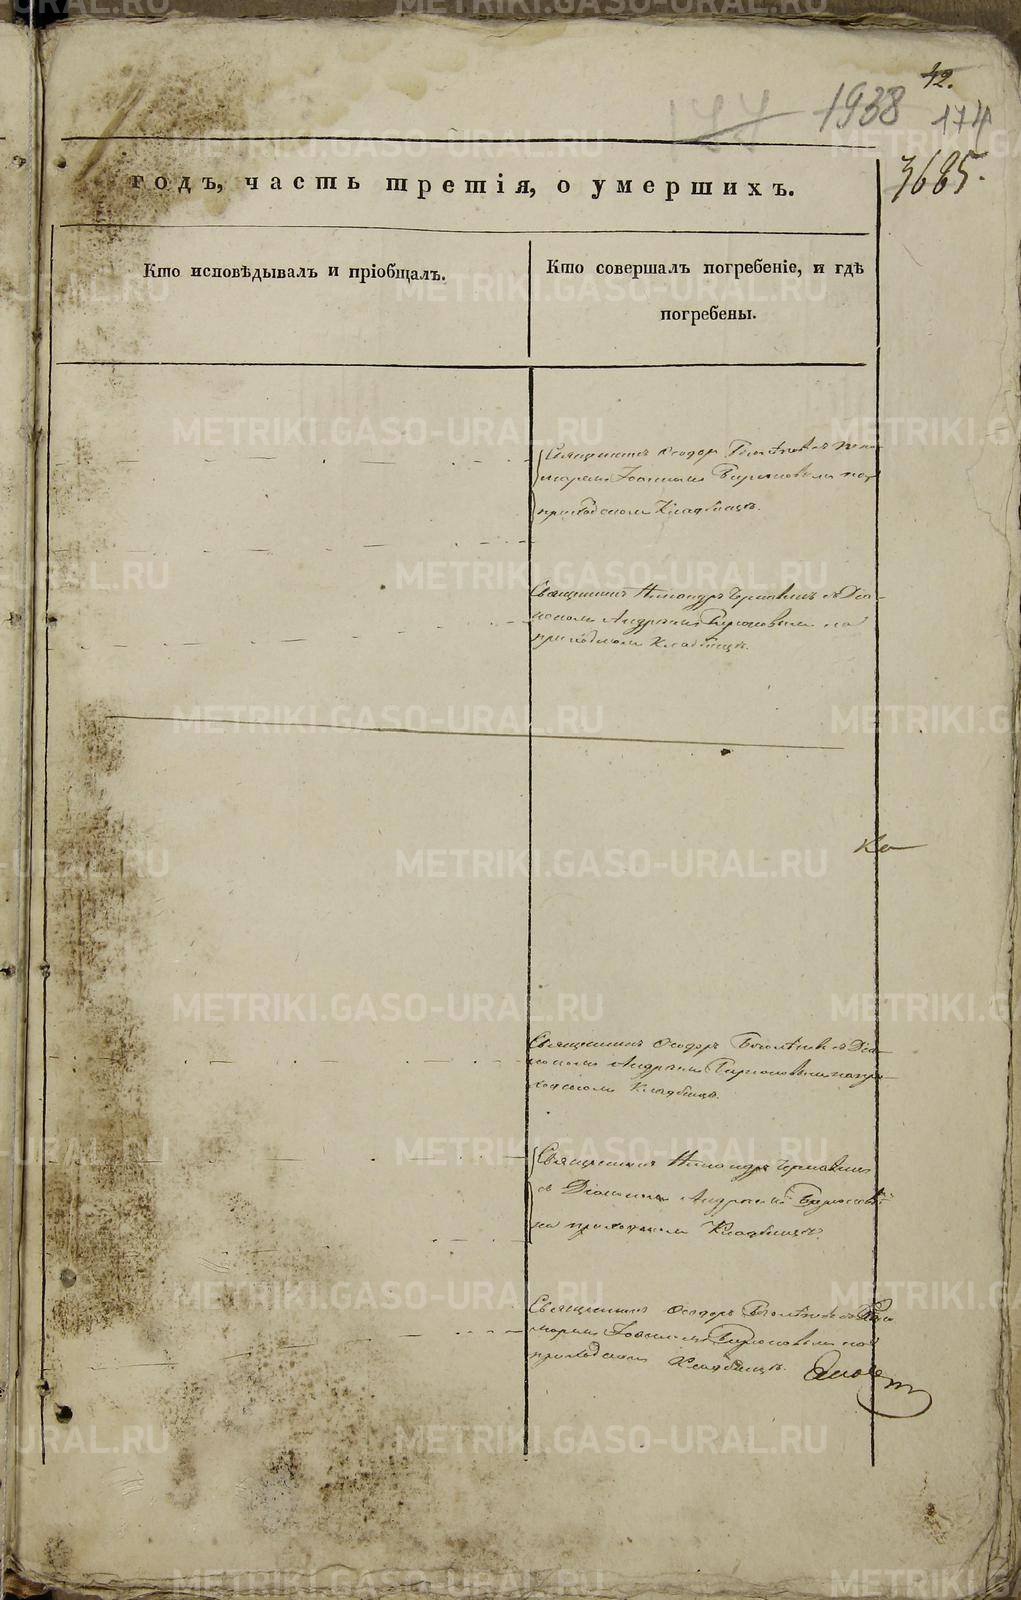 42.
177 1938 174
3685.
годъ, часть третія, о умершихъ.
Кто исповѣдывалъ и пріобщалъ.
Кто совершалъ погребеніе, и гдѣ
погребены.
Священникъ Ѳеодоръ съ поно-
маремъ Іоанномъ Бирюковымъ на
приходскомъ Кладбищѣ.
Священникъ съ Діа-
кономъ Андреемъ Бирюковымъ на
приходскомъ Кладбищѣ.
Ко
Священникъ Ѳеодоръ съ Діа-
кономъ Андреемъ Бирюковымъ на при-
ходскомъ Кладбищѣ.
Священникъ
съ Діакономъ Андреемъ
на приходскомъ Кладбищѣ.
Священникъ Ѳеодоръ съ Поно-
маремъ Іоанномъ Бирюковымъ на
приходскомъ Кладбищѣ.
METRIKI.GASO-URAL.RU